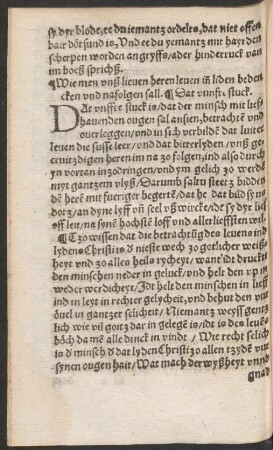 sy dyr blode, ee du iemantz ordelts, dat niet offen
bair dotsund is, Und ee du yemantz mit hayrden
scherpen worden angryffs / ader hinderruck van
im boeß sprichß.
¶ Wie men unß lieuen heren leuen in liden beden
cken und nafolgen sall. ¶ Dat vunfte stuck.
Dat vnffte stuck is / dat der minsch mit lief
hauenden ougen sal ansien, betrachte vnd
ouerleggen / vnd in sich verbilden dat luiter
leuen die suisse leer / vnd dat bitterlyden / vnß ge
cruitzdigen heren im na zo folgen, ind also durch
yn vortan in zodringen / vnd ym gelich zo werden
mynt gantzem vlyß / Darumb saltu steetz bidden
den here mit fueriger begerte / dat he dat bild sy
dotz / an dyne lyff vn seel vß wircke / dz sy dyr lief
off leu / na syne hochste loff vnd aller liefsten will
¶ Tzo wissen dat die betrachtug des leuens ind
lydens Christi is d nieste wech zo gotlicher weiß
heyt vnd zo alles heils rycheyt / want idt druckt
den minschen neder in geluck / vnd helt den vp in
weder werdicheyt / Idt helt den minschen in lieff
ind in leyt in rechter gelycheit, vnd behut den vur
ouel in gantzer selicheit / Niemantz weyß gentz
lich wie vil goitz dar in gelege is / idt is des leues
boch da me alle dinck in vindt / Wie recht selich
is d minsch d dat lyden Christi zo allen tzyde vur
synen ougen hait / Wat mach der wyßheyt vnd
gnad